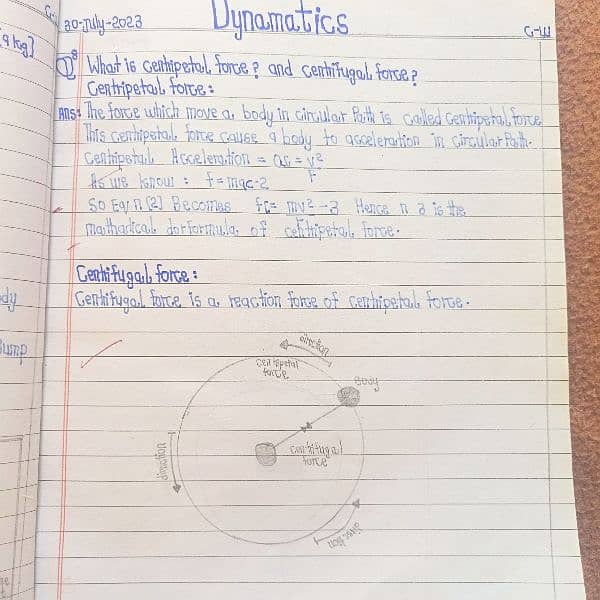 G-
30-July-2023
Dynamatics
C-W
Q8 What is centripetal force? and centrifugal force?
Centripetal force:
Ans: The force which move a body in circulair Path is called Centripetal force
This centripetal force cause a body to acceleration in circular Path.
Centripetal Acceleration = ac = v²/r
As we know: f=mac-2
So Eq n (2) Becomes fc= mv²-3 Hence n 3 is the
mathatical dorformula of centripetal force.
Centrifugal force:
Centrifugal force is a reaction force of centripetal force.
direction
centripetal
force
Body
direction
centrifugal
force
direction
ody
Bump